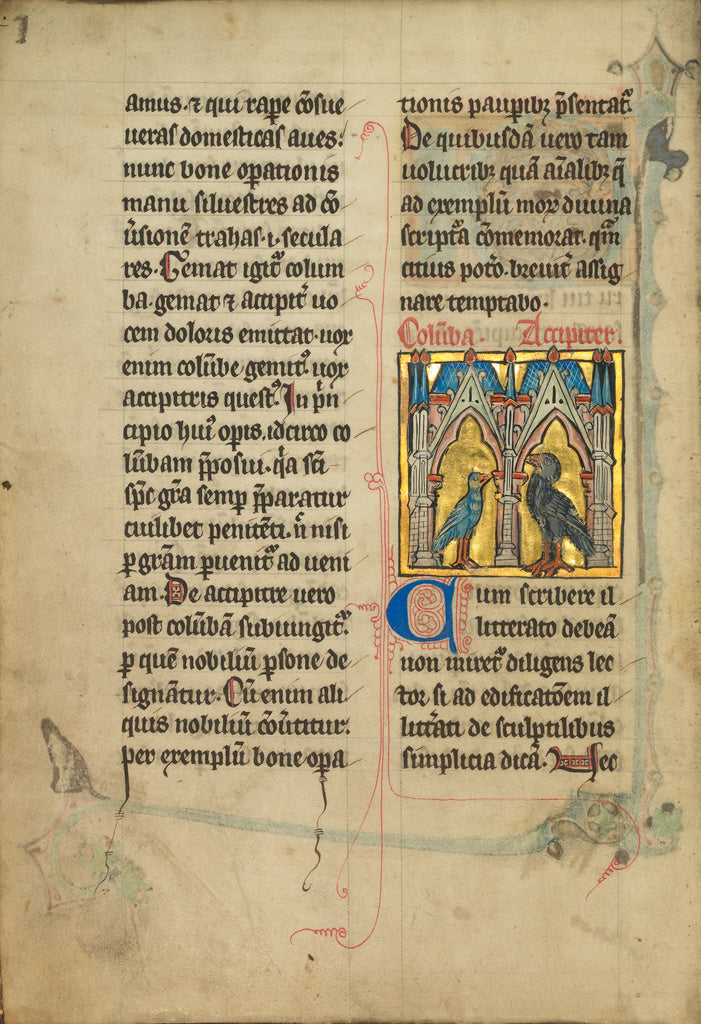 amus. ⁊ qui rape cōsue
ueras domesticas aues:
nunc bone oꝑationis
manu siluestres ad cō
ūsionē trahas .i. secula
res. Gemat igit᷑ colum
ba. gemat ⁊ accipit᷑ uo
cem doloris emittat. uox
enim colūbe gemit᷒. uox
accipitris quest᷒. In pⁱn
cipio hui᷒ opis. idcirco co
lūbam p̄posui. q̄a sc̄i
sp̄c gr̄a semp p̄paratur
cuilibet penitēti. ū nisi
ꝑ gr̄am ꝑuenit᷑ ad ueni
am. De accipitre uero
post colūbā subiungit᷑.
ꝑ quē nobiliū ꝑsone de
signātur. Cū enim ali
quis nobiliū cōūtitur.
per exemplū bone oꝑa
tionis pauꝑibꝫ p̄sentat᷑.
De quibusdā uero tam
uolucribꝫ quā aīalibꝫ q̄
ad exemplū moꝝ diuina
scripta cōmemorat. qm̄
citius potō. breuit᷑ assig
nare temptabo.
Colūba. Accipiter.
Cum scribere il
litterato debeā
non miret᷑ diligens lec
tor si ad edificatōem il
litt᷑ati de sculptilibus
simplicia dicā. Nec